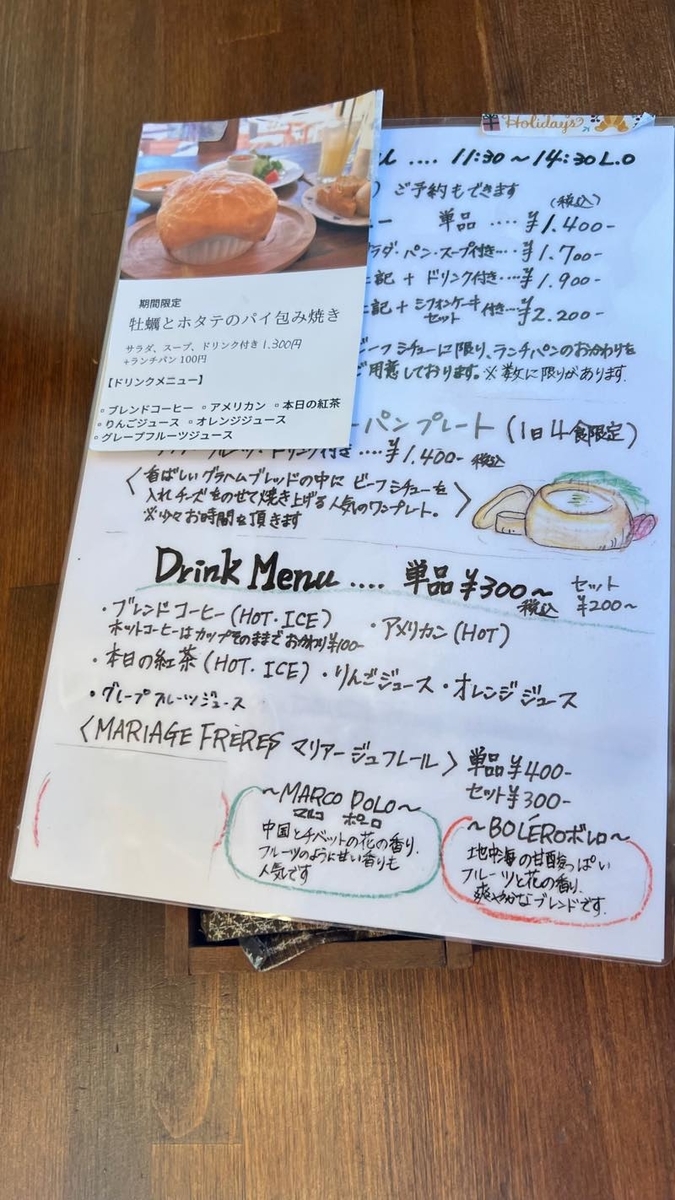 Holidays
.... 11:30～14:30 L.O
ご予約もできます
(税込)
単品 ....¥1.400-
ラダ・パン・スープ付き...¥1.700-
記 + ドリンク付き....¥1.900-
記 + シフォンケーキセット 付き...¥2.200-
ビーフシチューに限り、ランチパンのおかわりを
ご用意しております。※数に限りがあります.
期間限定
牡蠣とホタテのパイ包み焼き
サラダ、スープ、ドリンク付き 1,300円
+ランチパン 100円
【ドリンクメニュー】
▫ブレンドコーヒー ▫アメリカン ▫本日の紅茶
▫りんごジュース ▫オレンジジュース
▫グレープフルーツジュース
ーパンプレート (1日4食限定)
ドリンク付き....¥1.400- 税込
〈香ばしいグラハムブレッドの中に ビーフシチューを
入れチーズをのせて焼き上げる人気のワンプレート。〉
※少々お時間を頂きます
Drink Menu .... 単品¥300～ 税込 セット¥200～
・ブレンドコーヒー(HOT・ICE) ・アメリカン(HOT)
ホットコーヒーはカップそのままでおかわり¥100-
・本日の紅茶(HOT・ICE) ・りんごジュース ・オレンジジュース
・グレープフルーツジュース
〈MARIAGE FRÈRES マリアージュフレール〉 単品¥400-
セット¥300-
～MARCO POLO～
マルコ ポーロ
中国とチベットの花の香り.
フルーツのように甘い香りも
人気です
～BOLÉROボレロ～
地中海の甘酸っぱい
フルーツと花の香り.
爽やかなブレンドです.